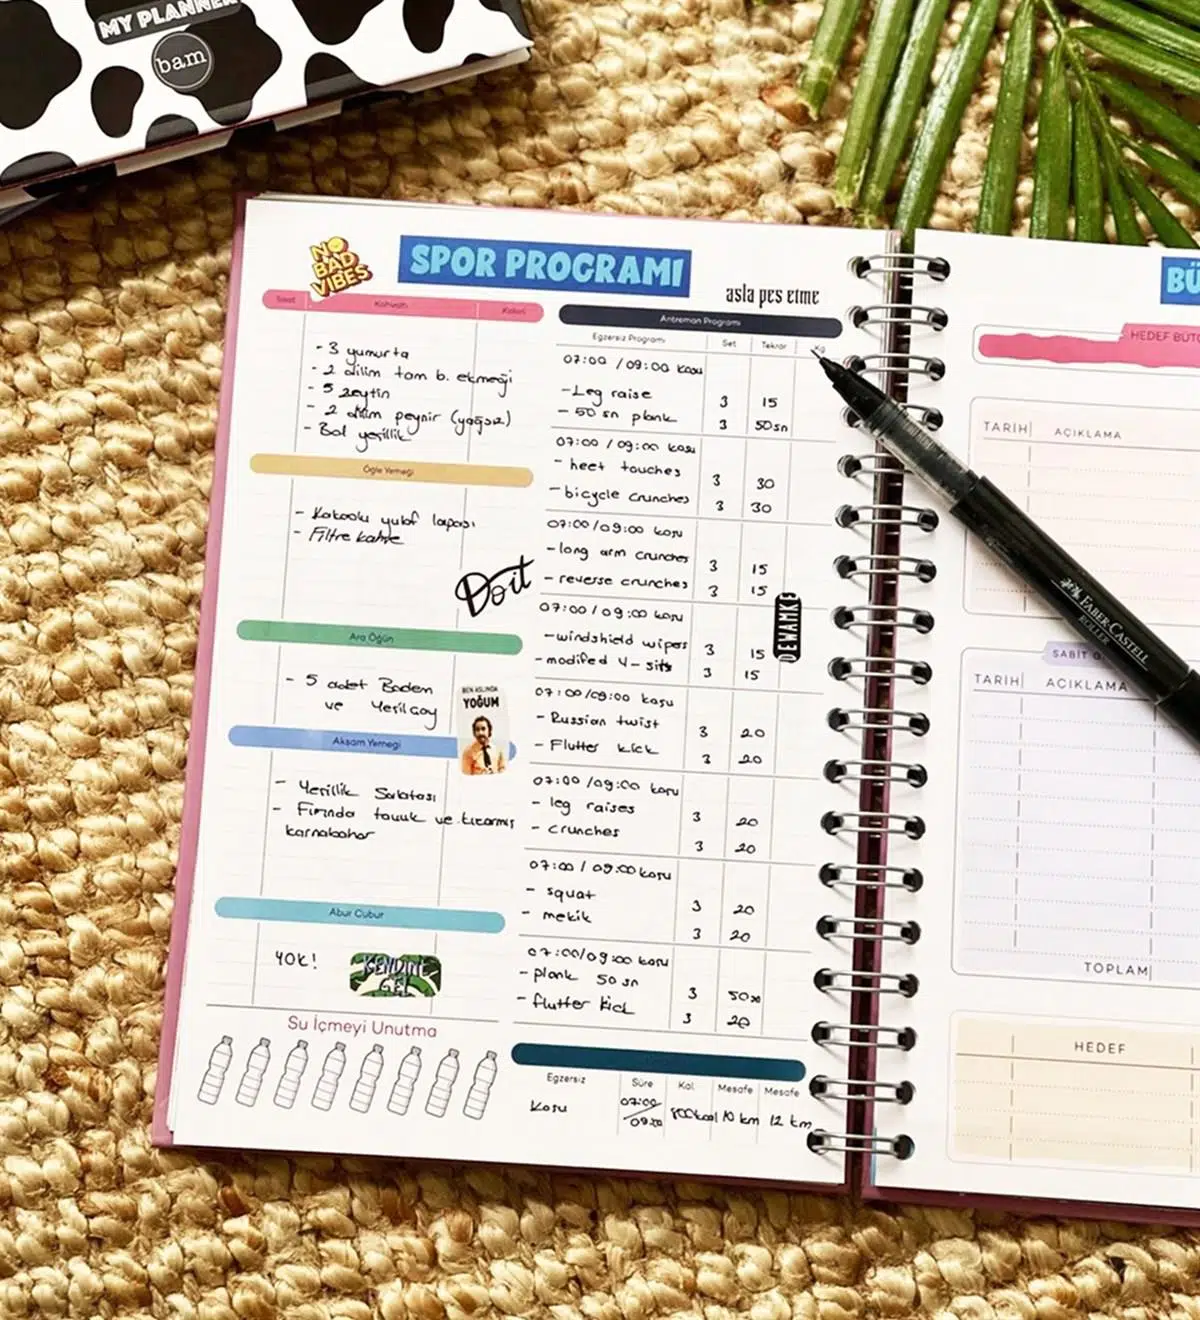 MY PLANNER
bam
NO
BAD
VIBES
SPOR PROGRAMI
asla pes etme
Saat Kahvaltı Kalori
- 3 yumurta
- 2 dilim tam b. ekmeği
- 5 zeytin
- 2 dilim peynir (yağsız)
- Bol yeşillik
Öğle Yemeği
- Kakaolu yulaf lapası
- Filtre kahve
Do it
Ara Öğün
- 5 adet Badem
ve Yeşilçay
BEN ASLINDA
YOĞUM
Akşam Yemeği
- Yeşillik Salatası
- Fırında tavuk ve kızarmış
karnabahar
Abur Cubur
YOK!
KENDİNE
GEL
Su İçmeyi Unutma
Antreman Programı
Egzersiz Programı Set Tekrar Kg
07:00 / 09:00 koşu
- Leg raise 3 15
- 50 sn plank 3 50sn
07:00 / 09:00 koşu
- heet touches 3 30
- bicycle crunches 3 30
07:00 / 09:00 koşu
- long arm crunches 3 15
- reverse crunches 3 15
07:00 / 09:00 koşu
- windshield wipers 3 15
- modified V-sits 3 15
DEWAMKE
07:00 / 09:00 koşu
- Russian twist 3 20
- Flutter kick 3 20
07:00 / 09:00 koşu
- leg raises 3 20
- crunches 3 20
07:00 / 09:00 koşu
- squat 3 20
- mekik 3 20
07:00/09:00 koşu
- plank 50 sn 3 50sn
- flutter kick 3 20
Egzersiz Süre Kal Mesafe Mesafe
Koşu 07:00 / 09:00 800kcal 10 km 12 km
BÜ
HEDEF BÜTÇ
TARİH AÇIKLAMA
SABİT G
TARİH AÇIKLAMA
TOPLAM
HEDEF
FABER-CASTELL
ROLLER